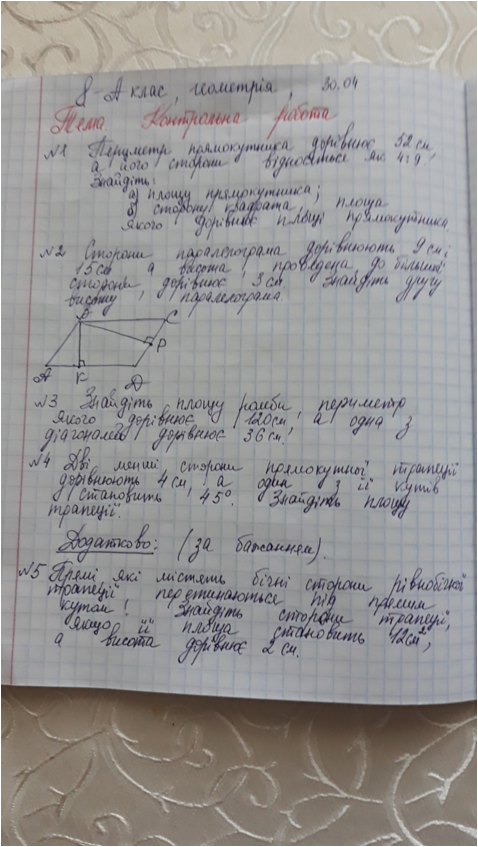 8-А клас, геометрія, 30.04
Тема Контрольна робота
№1 Периметр прямокутника дорівнює 52 см
а його сторони відносяться як 4:9.
Знайдіть:
а) площу прямокутника;
б) сторону квадрата, площа
якого дорівнює площі прямокутника.
№2 Сторони паралелограма дорівнюють 9 см і
15 см а висота, проведена до більшої
сторони, дорівнює 3 см. Знайдіть другу
висоту паралелограма.
В С
Р
А К D
№3 Знайдіть площу ромба, периметр
якого дорівнює 120 см, а одна з
діагоналей дорівнює 36 см.
№4 Дві менші сторони прямокутної трапеції
дорівнюють 4 см, а один з її кутів
становить 45°. Знайдіть площу
трапеції.
Додатково: (за бажанням).
№5 Прямі які містять бічні сторони рівнобічної
трапеції перетинаються під прямим
кутом. Знайдіть сторони трапеції,
якщо її площа становить 12 см²,
а висота дорівнює 2 см.